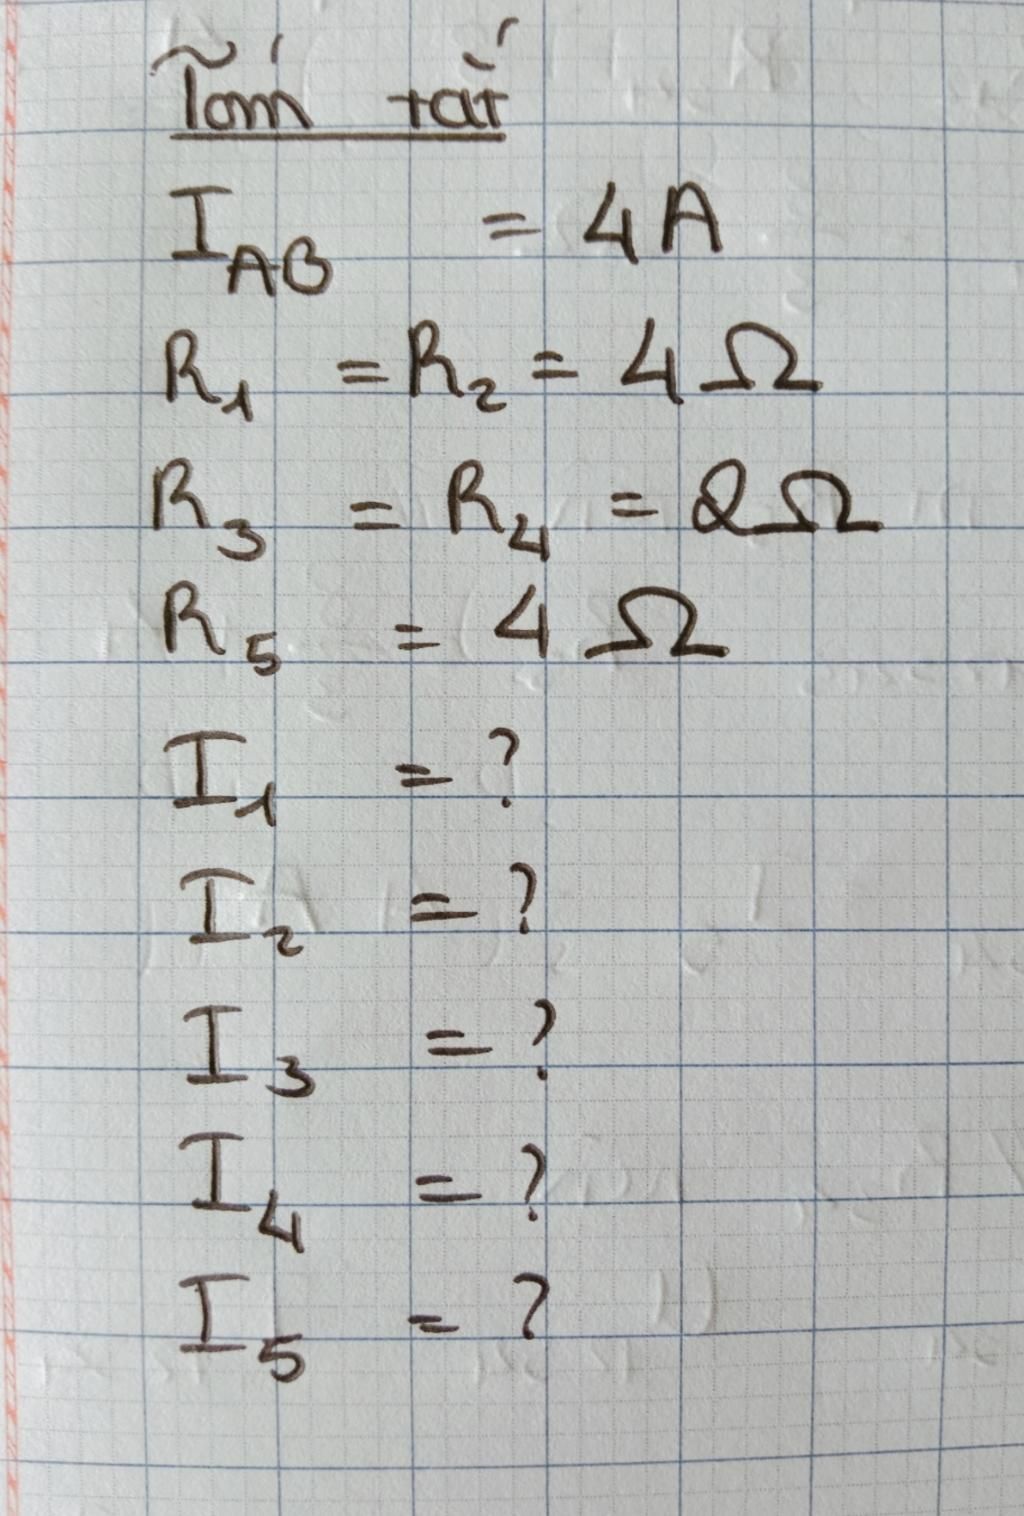 Tóm tắt
I_AB = 4A
R₁ = R₂ = 4Ω
R₃ = R₄ = 2Ω
R₅ = 4Ω
I₁ = ?
I₂ = ?
I₃ = ?
I₄ = ?
I₅ = ?